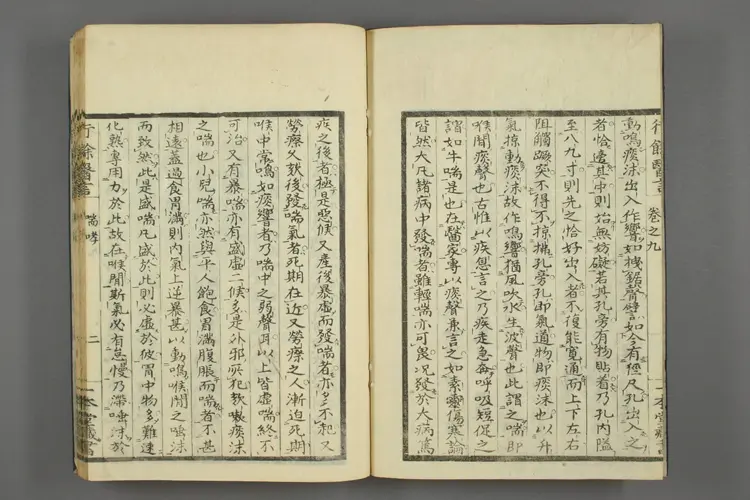 行餘醫言 卷之九
動鳴痰沫出入作響如棧
譬言如今有徑尺孔出入之
者恰邊其中則始無妨礙若其孔旁有物貼着乃孔內隘
至八九寸則先之恰好出入者不復能寬通而上下左右
阻觸蹶突不得不掠拂孔旁孔即氣道物即痰沫也以升
氣掠動痰沫故作鳴響猶風吹水生波聲也此謂之喘即
喉聞痰聲也古惟以疾息言之乃疾走急奔呼吸短促之
謂如牛喘是也在醫家專以痰聲兼言之如素靈傷寒論
皆然大凡諸病中發喘者雖輕喘亦可畏況發於大病篤
疾之後者極是惡候又產後暴虛而發喘者亦多不起又
勞瘵久欬後發喘氣者死期在近又勞瘵之人漸迫死期
喉中常鳴如痰響者乃喘中之弱聲耳以上皆虛喘終不
可治又有暴喘亦有盛虛二候多是外邪
欬嗽痰沫
之喘也小兒喘亦然與平人飽食胃滿腹脹而喘者不甚
相遠蓋過食胃滿則內氣上逆暴甚以動鳴喉間之唾沫
而致然此是盛喘凡盛於此則必虛於彼胃中物多難速
化熟專用力於此故在喉間斯氣必有怠慢乃滯唾沫於
行餘醫言
喘哮
二
一本堂藏書